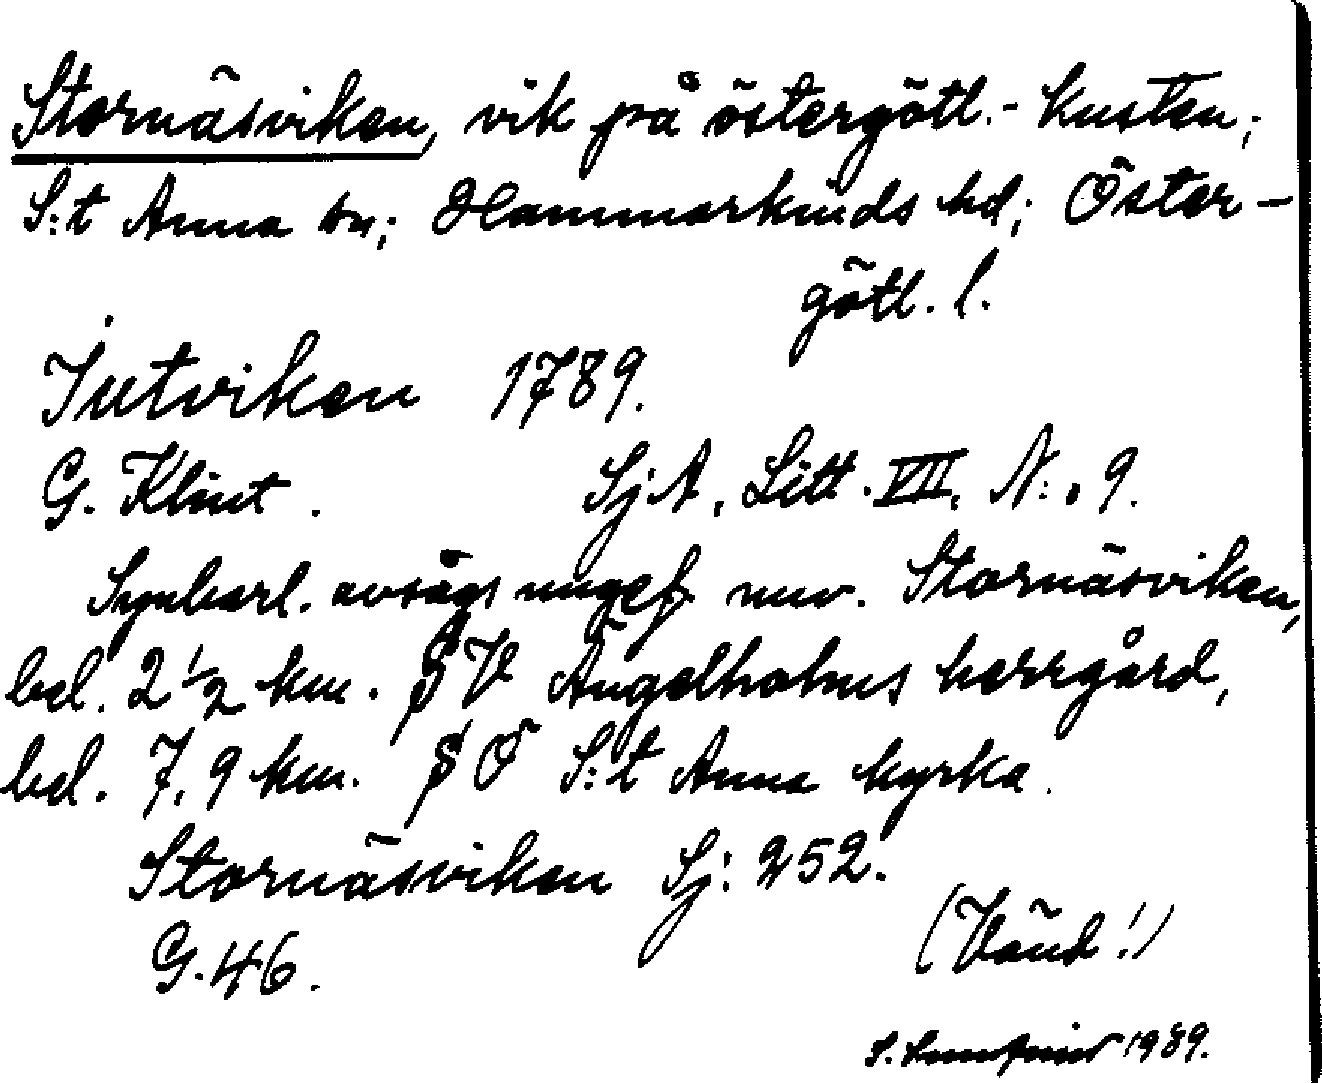 Stornäsviken, vik på östergötl.- kusten;
S:t Anna sn; Hammarkinds hd; Öster-
götl. l.
Jutviken 1789.
G. Klint. SjA, Litt. VII, N:o 9.
Synbarl. avsågs ungef. nuv. Stornäsviken,
bel. 2 1/2 km. S V Ängelholms herrgård,
bel. 7,9 km. S Ö S:t Anna kyrka.
Stornäsviken Sj: 252.
G. 46. (Vänd!)
S. 1989.